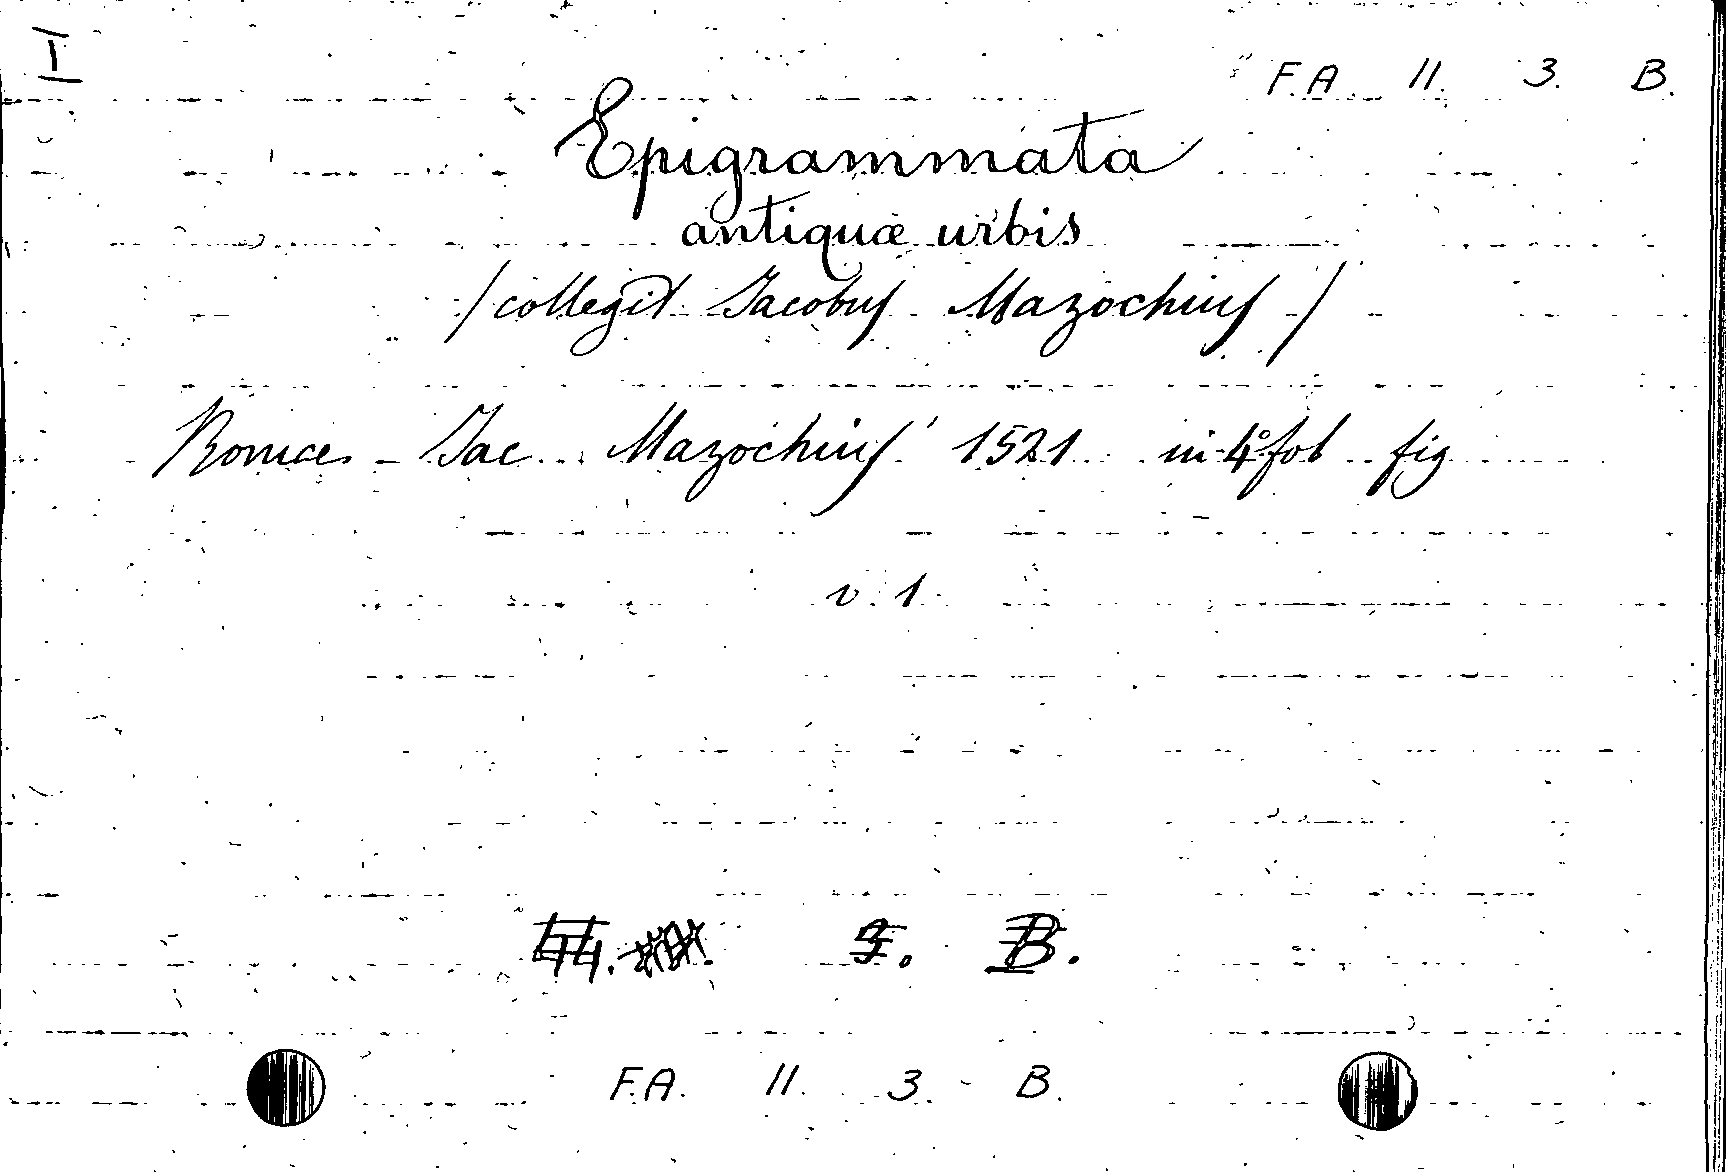 I
F.A. 11. 3. B.
Epigrammata
antiquæ urbis
/ collegit Jacobus Mazochius /
Romæ - Jac. Mazochius 1521 in-4º fol fig
v. 1
3. B.
F.A. 11. 3. B.